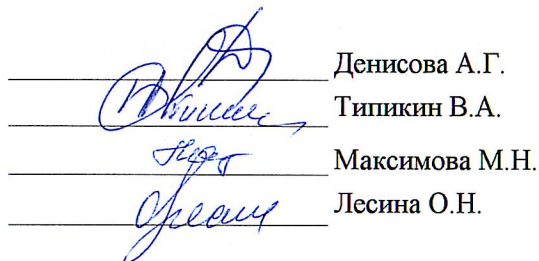 Денисова А.Г.
Типикин В.А.
Максимова М.Н.
Лесина О.Н.